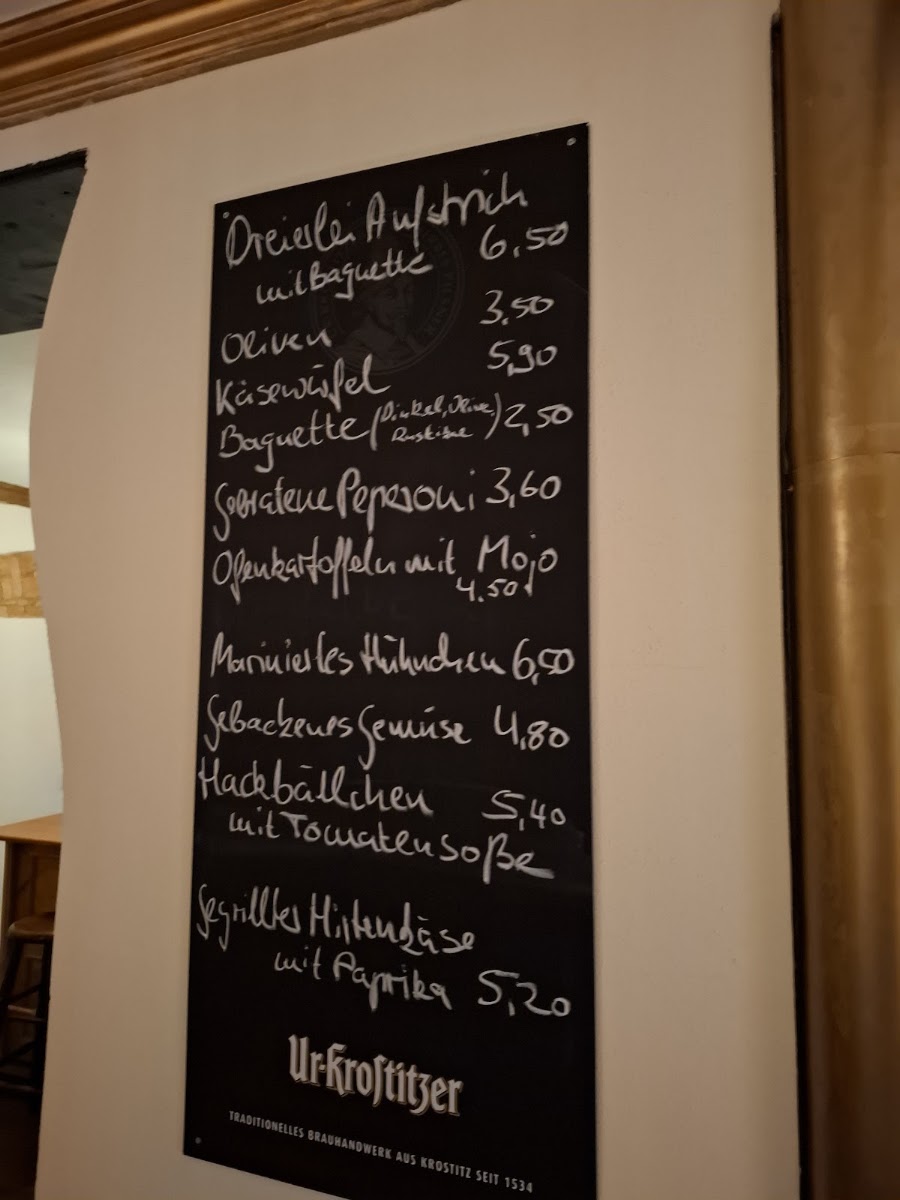 Dreierlei Aufstrich
mit Baguette 6,50
Oliven 3.50
Käsewürfel 5,90
Baguette (Dinkel, Olive, Rustikal) 2,50
Gebratene Peperoni 3,60
Ofenkartoffeln mit Mojo
4.50
Mariniertes Hühnchen 6,50
Gebackenes Gemüse 4,80
Hackbällchen 5,40
mit Tomatensoße
Gegrillter Hirtenkäse
mit Paprika 5,20
Ur-Krostitzer
TRADITIONELLES BRAUHANDWERK AUS KROSTITZ SEIT 1534